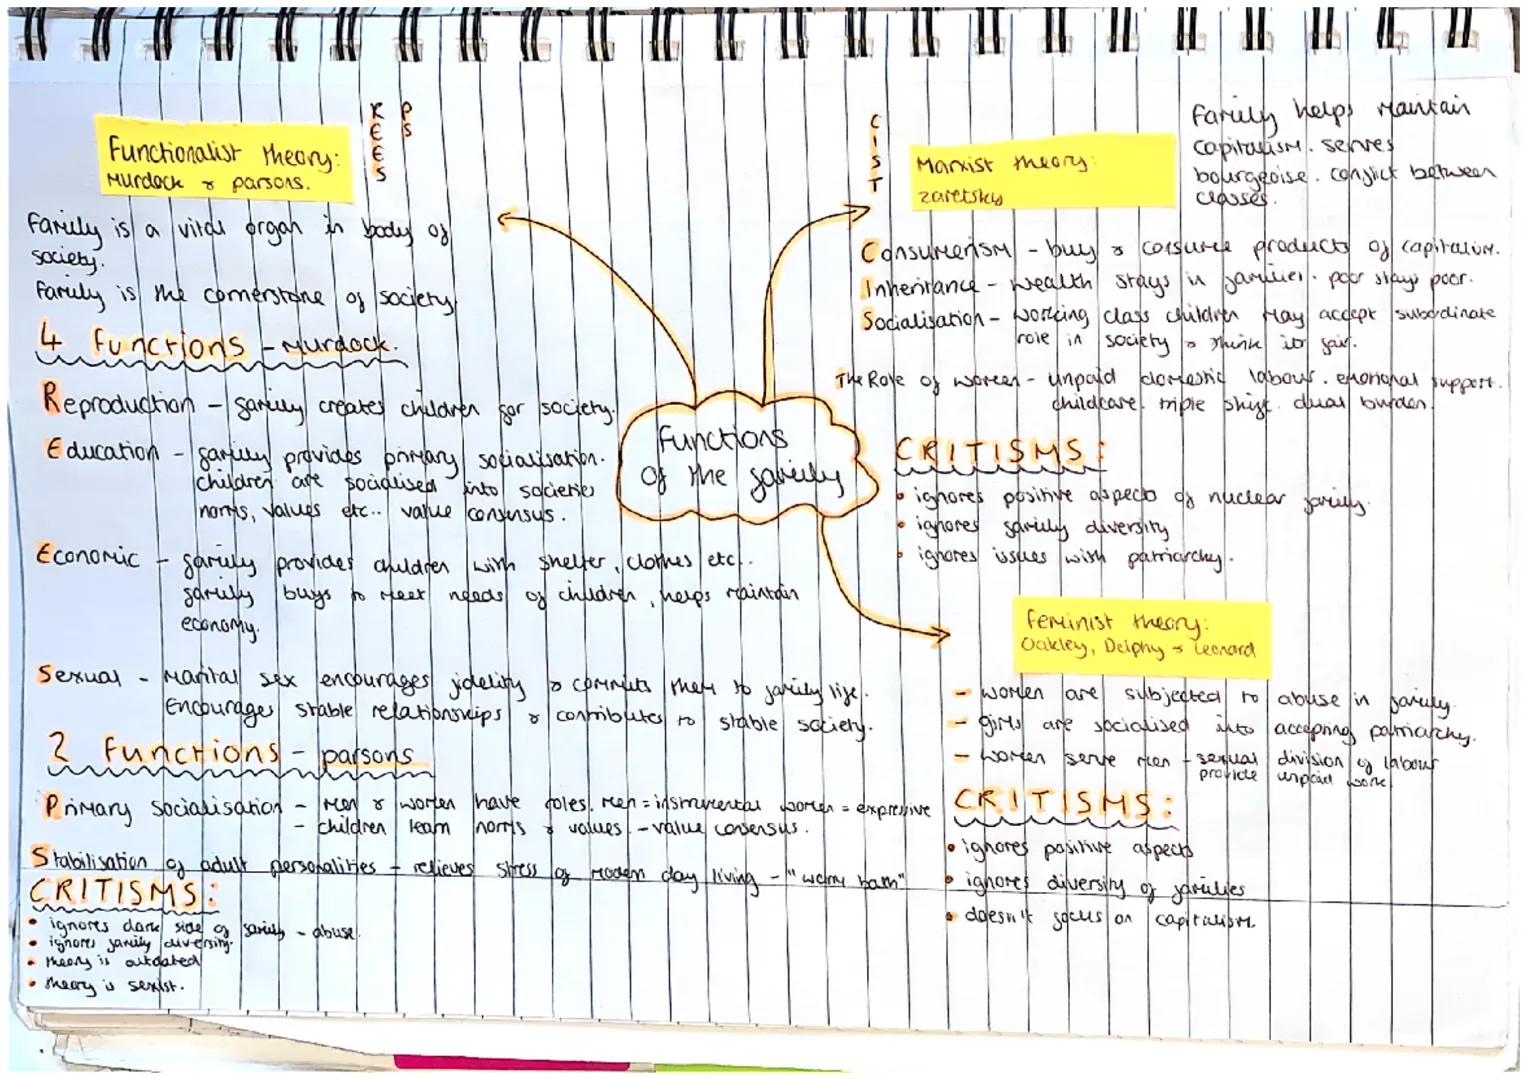 Functionalist theory:
Murdock & parsons.
REES
PS
Family is a vital organ in body of
society.
Family is the cornerstone of society
4 Functions - Murdock.
Reproduction - family creates children for society.
Education - family provides primary socialisation.
children are socialised into societies
norms, values etc.. value consensus.
Economic - family provides children with shelter, clothes etc.
family buys to meet needs of children, helps maintain
economy.
Sexual - Marital sex encourages fidelity & commits them to family life.
Encourages stable relationships & contributes to stable society.
2 Functions - parsons
Primary Socialisation - Men & women have roles. Men = instrumental women = expressive
- children learn norms & values - value consensus.
Stabilisation of adult personalities - relieves stress of modern day living - "warm bath"
CRITISMS:
• ignores dark side of family - abuse.
• ignores family diversity.
• theory is outdated
• theory is sexist.
Functions
of the family
CIST
Marxist theory:
zaretsky
Family helps maintain
capitalism. serves
bourgeoise. conflict between
classes.
Consumerism - buy & consume products of capitalism.
Inheritance - wealth stays in families. poor stays poor.
Socialisation - working class children may accept subordinate
role in society & think its fair.
The Role of women - unpaid domestic labour. emotional support.
childcare. triple shift. dual burden.
CRITISMS:
• ignores positive aspects of nuclear family.
• ignores family diversity
• ignores issues with patriarchy.
Feminist theory:
Oakley, Delphy & Leonard
- women are subjected to abuse in family.
- girls are socialised into accepting patriarchy.
- women serve men - sexual division of labour
provide unpaid work
CRITISMS:
• ignores positive aspects
• ignores diversity of families
• doesn't focus on capitalism.